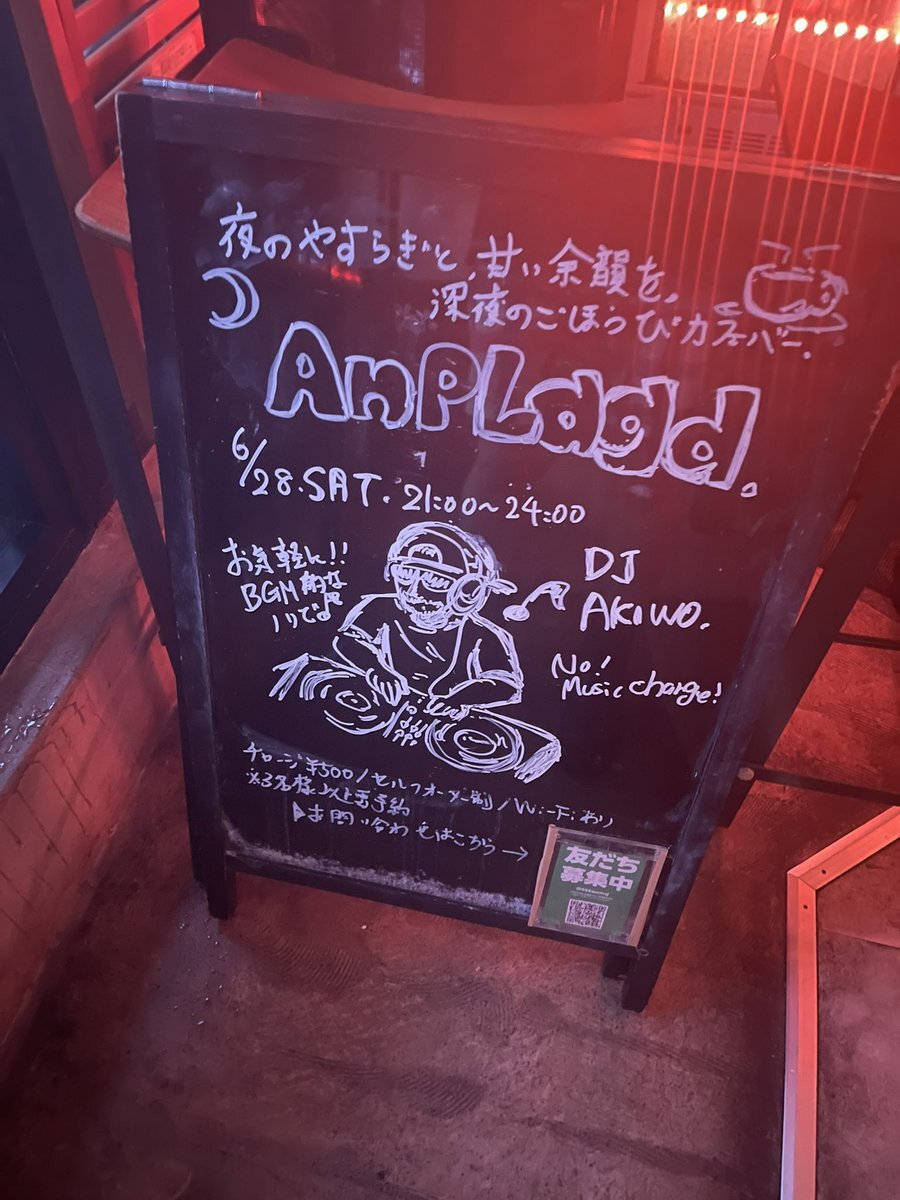 夜のやすらぎと、甘い余韻を、
深夜のごほうびカフェバー.
AnPLagd.
6/28.SAT. 21:00~24:00
お気軽に!!
BGM的な
ノリでる
DJ
AKIWO.
No!
Music charge!
チャージ¥500/セルフオーダー制/Wi-Fiあり
※3名様以上要予約
▶お問い合わせはこちら→
友だち
募集中